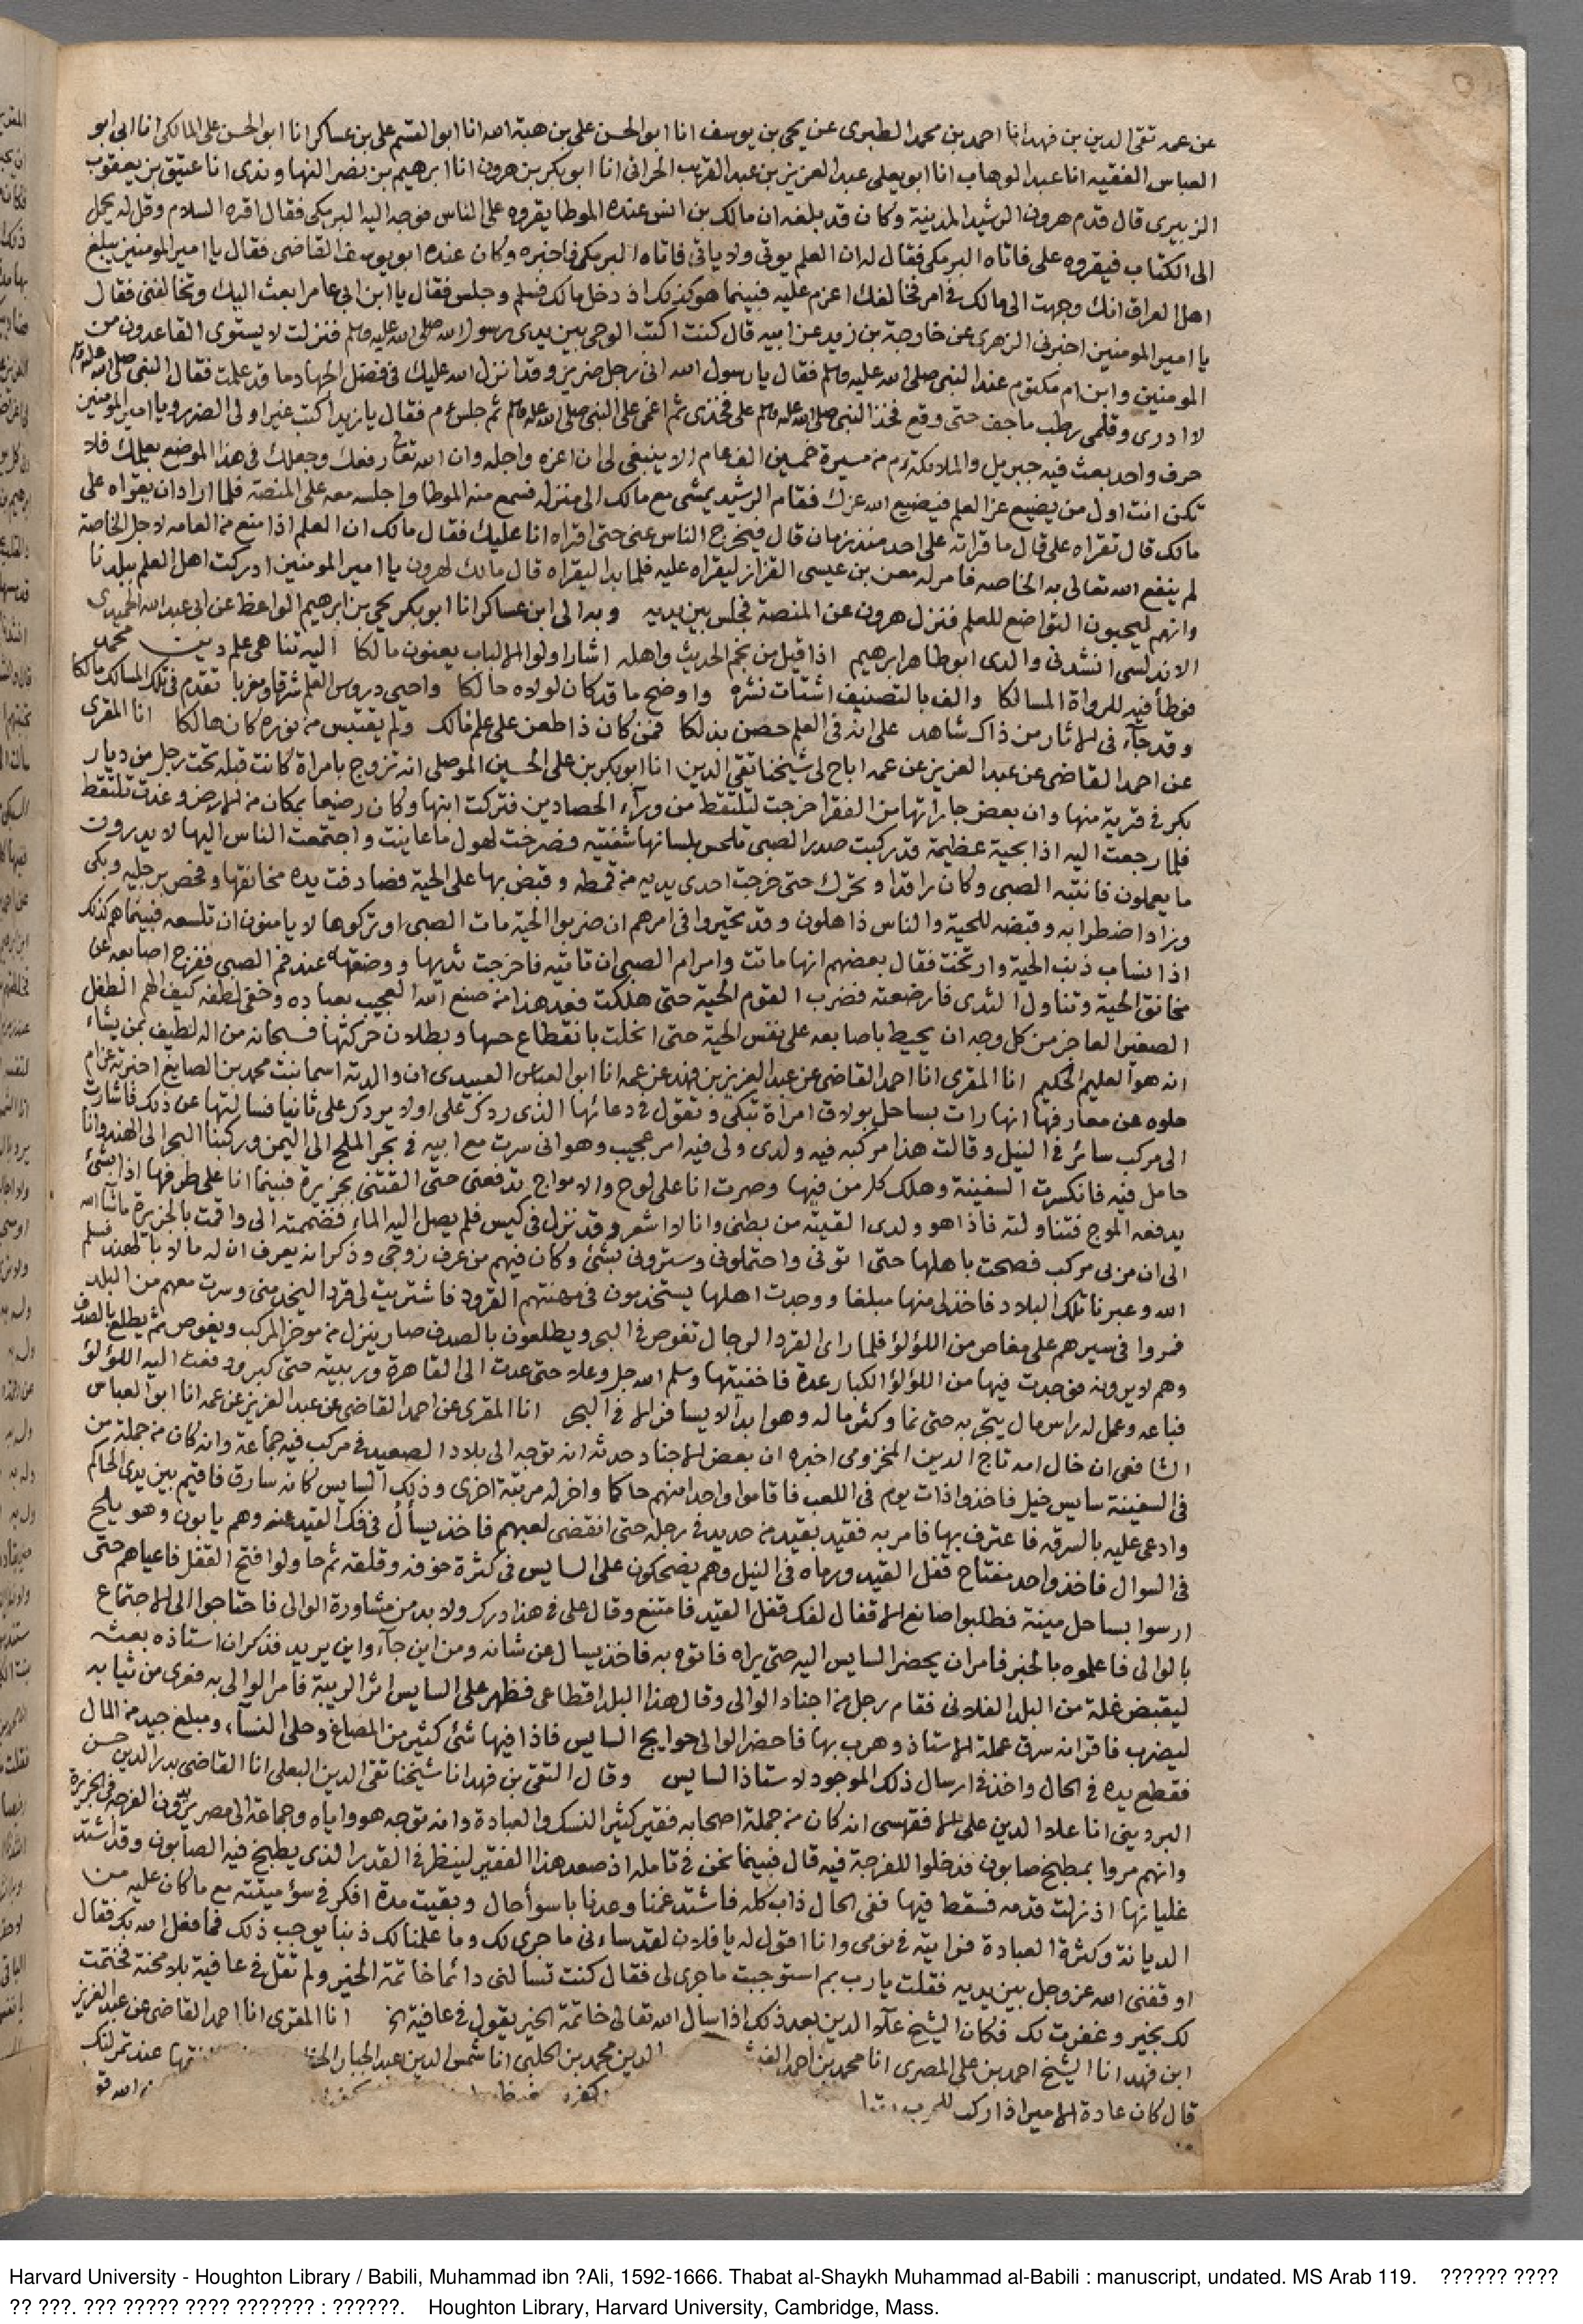 عن عمه تقى الدين بن فهد انا احمد بن محمد الطبرى عن يحيى بن يوسف انا ابو الحسن على بن هبة الله انا ابو القسم على بن عساكر انا ابو الحسن على المالكى انا ابى ابو
العباس الفقيه انا عبد الوهاب انا ابو يعلى عبد العزيز بن عبد القريب الحرانى انا ابو بكر بن هرون انا ابرهيم بن نضر النهاوندى انا عتيق بن يعقوب
الزبيرى قال قدم هرون الرشيد المدينة وكان قد بلغه ان مالك بن انس عنده الموطا يقروه على الناس فوجه اليه البرمكى فقال اقره السلام وقل له يحمل
الى الكتاب فيقروه على فاتاه البرمكى فقال له ان العلم يوتى ولا ياتى فاتاه البرمكى فاخبره وكان عنده ابو يوسف القاضى فقال يا امير المومنين يبلغ
اهل العراق انك وجهت الى مالك فى امر فخالفك اعزم عليه فبينما هو كذلك اذ دخل مالك فسلم وجلس فقال يا ابن ابى عامر ابعث اليك وتخالفنى فقال
يا امير المومنين اخبرنى الزهرى عن خارجة بن زيد عن ابيه قال كنت اكتب الوحى بين يدى رسول الله صلى الله عليه وسلم فنزلت لا يستوى القاعدون من
المومنين وابن ام مكتوم عند النبى صلى الله عليه وسلم فقال يا رسول الله انى رجل ضرير وقد انزل الله عليك فى فضل الجهاد ما قد علمت فقال النبى صلى الله عليه وسلم
لا ادرى وقلمى رطب ما جف حتى وقع فخذ النبى صلى الله عليه وسلم على فخذى ثم اغمى على النبى صلى الله عليه وسلم ثم جلس عم فقال يا زيد اكتب غير اولى الضرر ويا امير المومنين
حرف واحد بعث فيه جبريل والملائكة عم من مسيرة خمسين الف عام الا ينبغى لى ان اعزه واجله وان الله تعالى رفعك وجعلك فى هذا الموضع بعلمك فلا
تكن انت اول من يضيع عز العلم فيضيع الله عزك فقام الرشيد يمشى مع مالك الى منزله فسمع منه الموطا واجلسه معه على المنصة فلما اراد ان يقراه على
مالك قال تقراه على قال ما قراته على احد منذ زمان قال فيخرج الناس عنى حتى اقراه انا عليك فقال مالك ان العلم اذا منع من العامه لاجل الخاصة
لم ينفع الله تعالى به الخاصه فامر له معن بن عيسى القزاز ليقراه عليه فلما بدا ليقراه قال مالك لهرون يا امير المومنين ادركت اهل العلم ببلدنا
وانهم ليحبون التواضع للعلم فنزل هرون عن المنصة فجلس بين يديه وبه الى ابن عساكر انا ابو بكر يحيى بن ابرهيم الواعظ عن ابى عبد الله الحميدى
الاندلسى انشدنى والدى ابو طاهر ابرهيم اذا قيل من نجم الحديث واهله اشار اولو الالباب يعنون مالكا اليه تناهى علم دين محمد
فوطأ فيه للرواة المسالكا والف بالتصنيف اشتات نشره واوضح ما قد كان لولاه حالكا واحيى دروس العلم شرقا ومغربا تقدم فى تلك المسالك مالكا
وقد جآء فى الاثار من ذاك شاهد على انه فى العلم حص بذلكا فمن كان ذا طعن على علم مالك ولم يقتبس من نوره كان هالكا انا المقرى
عن احمد القاضى عن عبد العزيز عن عمه اباح لى شيخنا تقى الدين انا ابو بكر بن على الحسين الموصلى انه تزوج بامراة كانت قبله تحت رجل من ديار
بكر فى قرية منها وان بعض جاراتها من الفقرا خرجت لتلتقط من ورآء الحصادين فتركت ابنها وكان رضيعا بمكان من الارض وغدت تلتقط
فلما رجعت اليه اذا بحية عظيمة قد ركبت صدر الصبى تلحس بلسانها شفتيه فصرخت لهول ما عاينت واجتمعت الناس اليها لا يدرون
ما يعملون فانتبه الصبى وكان راقدا وتحرك حتى خرجت احدى يديه من قمطه وقبض بها على الحية فصادفت يده مخانقها وفحص برجليه وبكى
وزاد اضطرابه وقبضه للحية والناس ذاهلون وقد تحيروا فى امرهم ان ضربوا الحية مات الصبى او تركوها لا يامنون ان تلسعه فبينما هم كذلك
اذا نساب ذنب الحية وارتخت فقال بعضهم انها ماتت وامرام الصبى ان تاتيه فاخرجت ثديها ووضعته عند فم الصبى ففرج اصابعه عن
مخانق الحية وتناول الثدى فارضعته فضرب القوم الحية حتى هلكت فعد هذا من صنع الله العجيب بعباده وخفى لطفه كيف الهم الطفل
الصغير العاجز من كل وجه ان يحيط باصابعه على نفس الحية حتى انحلت بانقطاع حسها وبطلان حركتها فسبحانه من اله لطيف بمن يشاء
انه هو العليم الحكيم انا المقرى انا احمد القاضى عن عبد العزيز بن فهد عن عمه انا ابو العباس العبيدى ان والدته اسما بنت محمد بن الصايغ اخبرته عن ام
حلوه عن معارفها انها رات بساحل بولاق امراة تبكى وتقول فى دعائها الذى رد كز على اولا يرد كز على ثانيا فسالتها عن ذلك فاشارت
الى مركب سائر فى النيل وقالت هذا مركبه فيه ولدى ولى فيه امر عجيب وهو انى سرت مع ابيه فى بحر الملح الى اليمن وركبنا البحر الى الهند وانا
حامل فيه فانكسرت السفينة وهلك كل من فيها وصرت انا على لوح والامواج تدفعنى حتى القتنى بجزيرة فبينما انا على طرفها اذا بشئ
يدفعه الموج فتناولته فاذا هو ولدى القيته من بطنى وانا لا اشعر وقد نزل فى كيس فلم يصل اليه الماء فضممته الى واقمت بالجزيرة ما شا الله
الى ان مر بى مركب فصحت باهلها حتى اتونى واحتملونى وسترونى بشئ وكان فيهم من عرف زوجى وذكر انه يعرف ان له مالا بالهند فسلم
الله وعبرنا تلك البلاد فاخذ لى منها مبلغا ووجدت اهلها يستخدمون فى مهنتهم القرود فاشتريت لى قردا ليخدمنى وسرت معهم من البلد
فمروا فى سيرهم على مغاص من اللؤلؤ فلما راى القرد الرجال تغوص فى البحر ويطلعون بالصدف صار ينزل من موخر المركب ويغوص ثم يطلع بالصدف
وهم لا يرونه فوجدت فيها من اللؤلؤ الكبار عدة فاخفيتها وسلم الله جل وعلا حتى عدت الى القاهرة وربيته حتى كبر ودفعت اليه اللؤلؤ
فباعه وعمل له راس مال يتجر به حتى نما وكثر ماله وهو ابدا لا يسافر الا فى البحر انا المقرى عن احمد القاضى عن عبد العزيز عن عمه انا ابو العباس
الشافعى ان خال امه تاج الدين المخزومى اخبره ان بعض الاجناد حدثه انه توجه الى بلاد الصعيد فى مركب فيه جماعة وانه كان من جملة من
فى السفينة سايس خيل فاخذوا ذات يوم فى اللعب فاقاموا واحدا منهم حاكما واخر له مرتبة اخرى وذلك السايس كانه سارق فاقيم بين يدى الحاكم
وادعى عليه بالسرقه فاعترف بها فامر به فقيد بقيد من حديد فى رجله حتى انقضى لعبهم فاخذ يسأل فى فك القيد عنه وهم يابون وهو يلح
فى السوال فاخذ واحد مفتاح قفل القيد ورماه فى النيل وهم يضحكون على السايس فى كثرة خوفه وقلقه ثم حاولوا فتح القفل فاعياهم حتى
ارسوا بساحل مينة فطلبوا صانع الاقفال لفك قفل القيد فامتنع وقال على فى هذا درك ولا بد من مشاورة الوالى فاحتاجوا الى الاجتماع
بالوالى فاعلموه بالخبر فامر ان يحضر السايس اليه حتى يراه فاتوه به فاخذ يسال عن شانه ومن اين جآء واين يريد فذكر ان استاذه بعثه
ليقبض غلة من البلد الفلانى فقام رجل من اجناد الوالى وقال هذا البلد اقطاعى فظهر على السايس اثر الريبة فامر الوالى به فعرى من ثيابه
ليضرب فاقر انه سرق عملة لاستاذ وهرب بها فاحضر الوالى حوايج السايس فاذا فيها شئ كثير من المصاغ وحلى النسآء ومبلغ جيد من المال
فقطع يده فى الحال واخذ فى ارسال ذلك الموجود لاستاذ السايس وقال التقى بن فهد انا شيخنا تقى الدين البعلى انا القاضى بدر الدين حسن
البردينى انا علاء الدين على الاقفهسى انه كان من جملة اصحابه فقير كثير النسك والعبادة وانه توجه هو واياه وجماعة الى مصر يريدون الفرجه فى الجزيرة
وانهم مروا بمطبخ صابون فدخلوا للفرجة فيه قال فبينما نحن فى تامله اذ صعد هذا الفقير لينظر فى القدر الذى يطبخ فيه الصابون وقد اشتد
غليانها اذ نزلت قدمه فسقط فيها ففى الحال ذاب كله فاشتد غمنا وعدنا باسوأ حال وبقيت مدة افكر فى سؤ ميتته مع ما كان عليه من
الديانة وكثرة العبادة فرايته فى نومى وانا اقول له يا فلان لقد ساءنى ما جرى لك وما علمنا لك ذنبا يوجب ذلك فما فعل الله بك فقال
اوقفنى الله عز وجل بين يديه فقلت يا رب بم استوجبت ما جرى لى فقال كنت تسالنى دائما خاتمة الخير ولم تقل فى عافية بلا محنة فختمت
لك بخير وغفرت لك فكان الشيخ علاء الدين بعد ذلك اذا سال الله تعالى خاتمة الخير يقول فى عافية الخ انا المقرى انا احمد القاضى عن عبد العزيز
ابن فهد انا الشيخ احمد بن على المصرى انا محمد بن احمد الدين محمد بن الحلبى انا شمس الدين عبد الجبار عند تمرلنك
قال كان عادة الامير اذا ركب للحرب
Harvard University - Houghton Library / Babili, Muhammad ibn ?Ali, 1592-1666. Thabat al-Shaykh Muhammad al-Babili : manuscript, undated. MS Arab 119. ?????? ????
?? ???. ??? ????? ???? ??????? : ??????. Houghton Library, Harvard University, Cambridge, Mass.